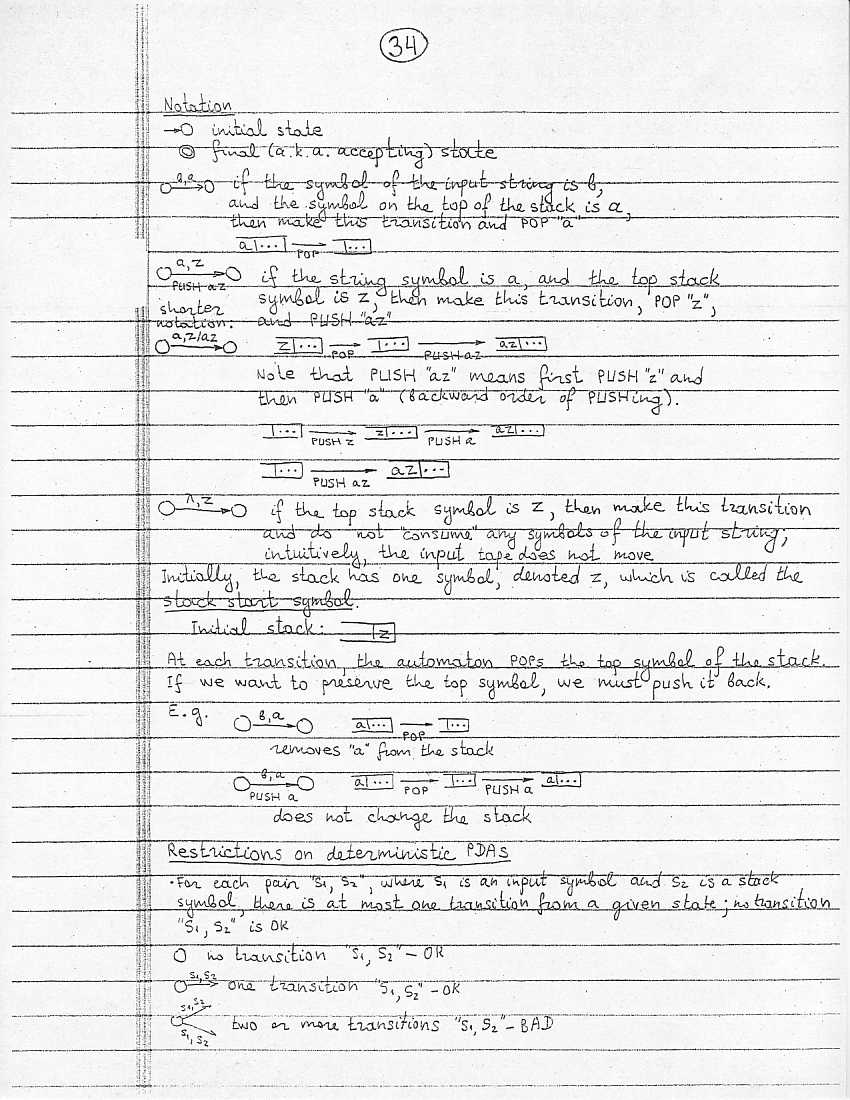 34
Notation
initial state
final (a.k.a. accepting) state
b,a if the symbol of the input string is b,
and the symbol on the top of the stack is a,
then make this transition and POP "a"
a ... POP ...
a,z if the string symbol is a, and the top stack
PUSH az symbol is z, then make this transition, POP "z",
shorter notation: and PUSH "az"
a,z/az z ... POP ... PUSH az az ...
Note that PUSH "az" means first PUSH "z" and
then PUSH "a" (backward order of PUSHing).
... PUSH z z ... PUSH a az ...
... PUSH az az ...
Λ,z if the top stack symbol is z, then make this transition
and do not "consume" any symbols of the input string;
intuitively, the input tape does not move
Initially, the stack has one symbol, denoted z, which is called the
stack start symbol.
Initial stack: z
At each transition, the automaton POPs the top symbol of the stack.
If we want to preserve the top symbol, we must push it back.
E.g. b,a a ... POP ...
removes "a" from the stack
b,a PUSH a a ... POP ... PUSH a a ...
does not change the stack
Restrictions on deterministic PDAs
• For each pair "s1, s2", where s1 is an input symbol and s2 is a stack
symbol, there is at most one transition from a given state; no transition
"s1, s2" is OK
no transition "s1, s2" – OK
s1,s2 one transition "s1, s2" – OK
s1,s2
s1,s2 two or more transitions "s1, s2" – BAD